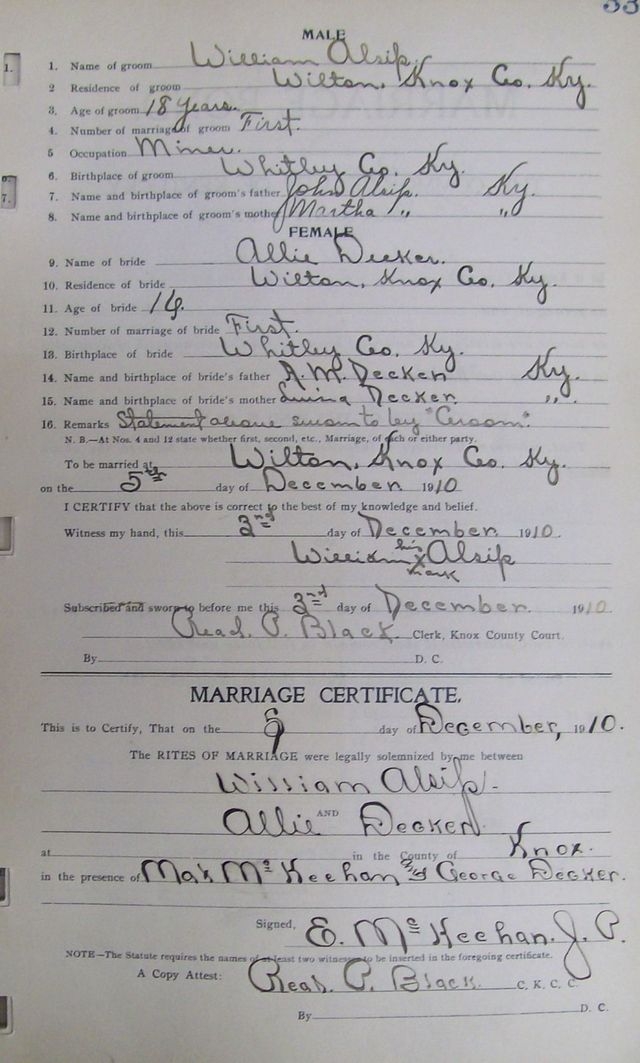 33
MALE
1. Name of groom William Alsip.
2 Residence of groom Wilton, Knox Co. Ky.
3. Age of groom 18 years.
4. Number of marriage of groom First.
5 Occupation Miner.
6. Birthplace of groom Whitley Co. Ky.
7. Name and birthplace of groom's father John Alsip. Ky.
8. Name and birthplace of groom's mother Martha " "
FEMALE
9. Name of bride Allie Decker.
10. Residence of bride Wilton, Knox Co. Ky.
11. Age of bride
12. Number of marriage of bride First.
13. Birthplace of bride Whitley Co. Ky.
14. Name and birthplace of bride's father A. M. Decker Ky.
15. Name and birthplace of bride's mother Decker. ".
16. Remarks Statement above sworn to by "Groom".
N. B.—At Nos. 4 and 12 state whether first, second, etc., Marriage, of each or either party.
To be married at Wilton, Knox Co. Ky.
on the 5th day of December 1910
I CERTIFY that the above is correct to the best of my knowledge and belief.
Witness my hand, this 2nd day of December. 1910.
William his x mark Alsip
Subscribed and sworn to before me this 2nd day of December. 1910.
Read. P. Black. Clerk, Knox County Court.
By D. C.
MARRIAGE CERTIFICATE.
This is to Certify, That on the day of December, 1910.
The RITES OF MARRIAGE were legally solemnized by me between
William Alsip.
AND
Allie Decker.
at in the County of Knox.
in the presence of Max Mc Keehan and George Decker.
Signed, E. Mc Keehan. J. P.
NOTE—The Statute requires the names of at least two witnesses to be inserted in the foregoing certificate.
A Copy Attest: Read. P. Black. C. K. C. C.
By D. C.
1.
7.